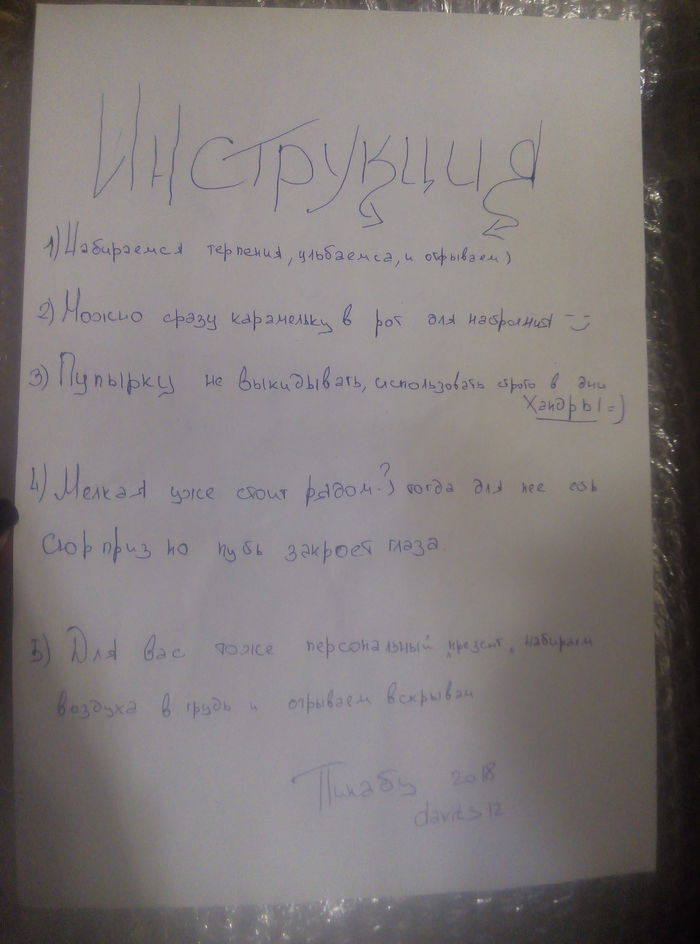 Инструкция
1) Набираемся терпения, улыбаемса, и открываем)
2) Можно сразу карамельку в рот для настроения =)
3) Пупырку не выкидывать, использовать строго в дни
Хандры =)
4) Мелкая уже стоит рядом?) тогда для нее есть
Сюрприз но путь закроет глаза.
5) Для вас тоже персональный "презент", набираем
воздуха в грудь и отрываем вскрываем
Пикабу 2018
davies12